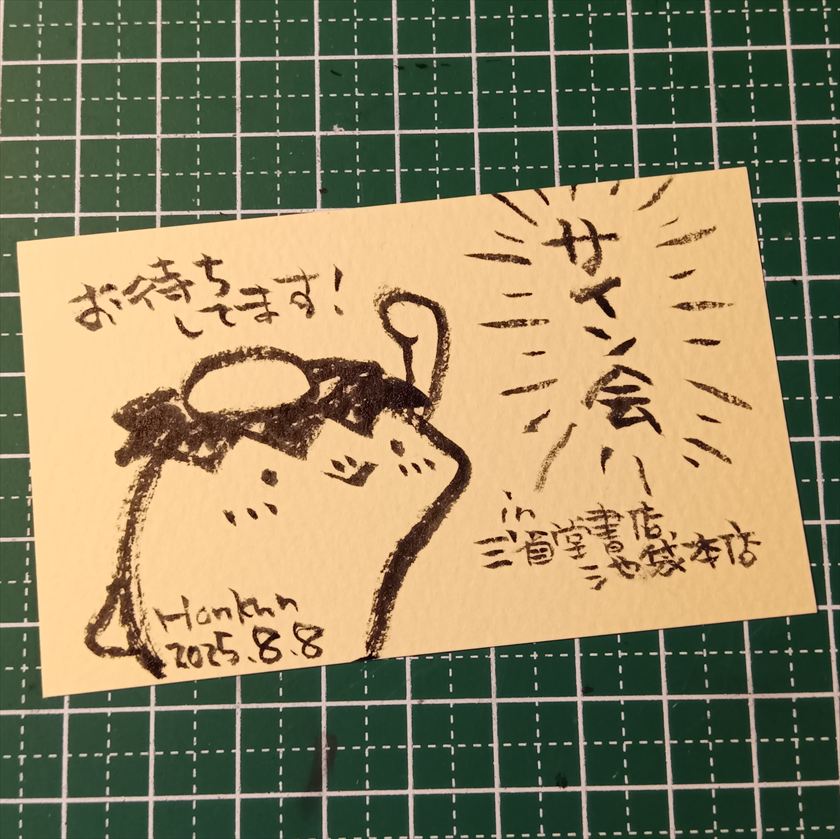 お待ち
してます!
サイン会
in
三省堂書店
池袋本店
Honkun
2025.8.8